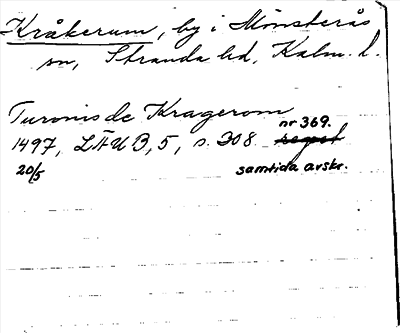 Kråkerum, by i Mönsterås
sn, Stranda hd, Kalm. l.
Turonis de Kragerom
1497, LÄUB, 5, s. 308 nr 369.
20/5 samtida avskr.